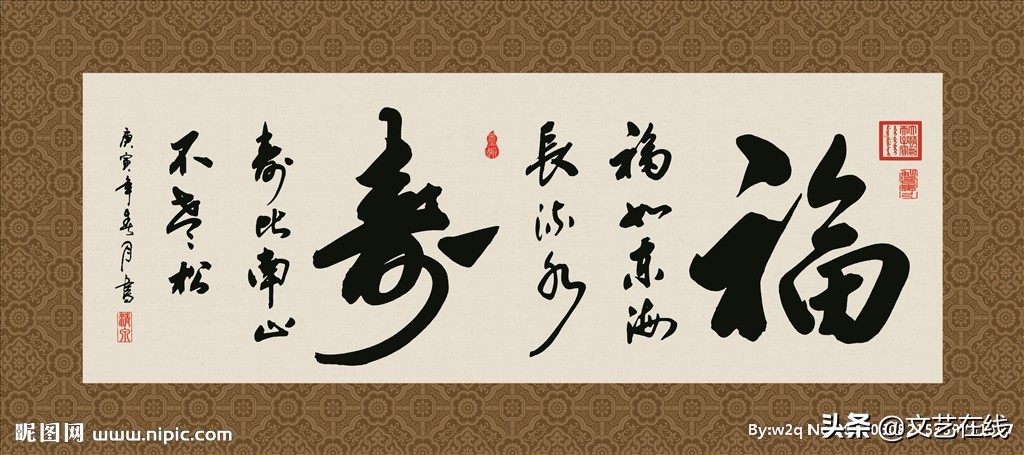 福
福如东海
長流水
寿
寿比南山
不老松
庚寅年春月書
昵图网 www.nipic.com
By:w2q N
头条 @文艺在线